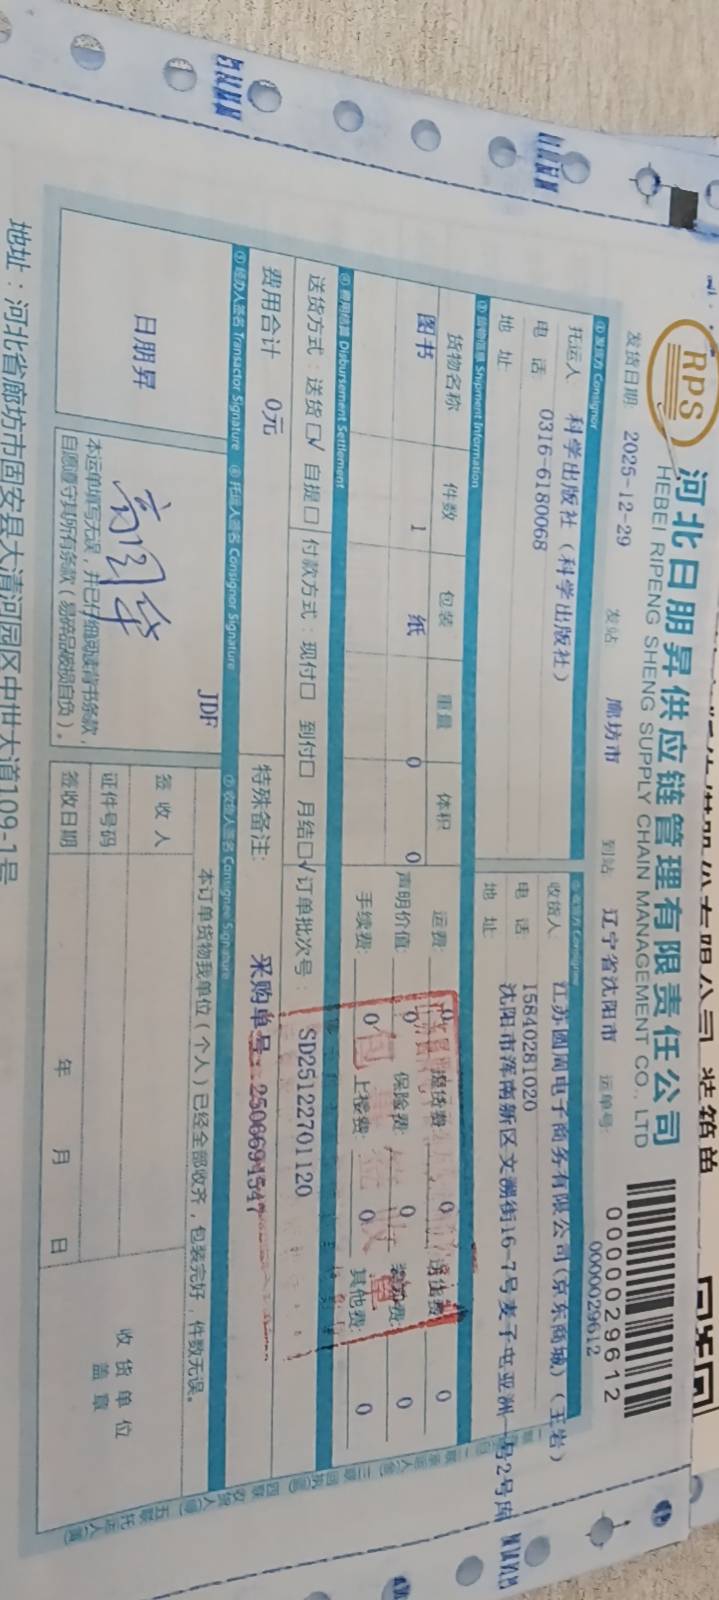 RPS
河北日朋昇供应链管理有限责任公司
HEBEI RIPENG SHENG SUPPLY CHAIN MANAGEMENT CO., LTD
0000029612
发货日期: 2025-12-29 发站 廊坊市 到站 辽宁省沈阳市 运单号: 0000029612
①发货方 Consignor
托运人 科学出版社（科学出版社）
电 话 0316-6180068
地 址
②收货方 Consignee
收货人: 江苏圆周电子商务有限公司(京东商城)（王岩）
电话 15840281020
地 址: 沈阳市浑南新区文溯街16-7号麦子屯亚洲一号2号库
③货物信息 Shipment Information
货物名称 件数 包装 重量 体积
图书 1 纸 0 0
运费: 0 提货费: 0 送货费: 0
声明价值: 0 保险费: 0 0
手续费: 0 上楼费: 0 其他费: 0
④费用结算 Disbursement Settlement
送货方式：送货□√ 自提□ 付款方式：现付□ 到付□ 月结□√ 订单批次号： SD25122701120
费用合计 0元 特殊备注: 采购单号：2506691547
⑤经办人签名 Transactor Signature ⑥托运人签名 Consignor Signature ⑦收货人签名 Consignee Signature
日朋昇
JDF
本运单填写无误，并已仔细阅读背书条款，
自愿遵守其所有条款（易碎品破损自负）。
本订单货物我单位（个人）已经全部收齐，包装完好，件数无误。
签 收 人
证件号码
签收日期 年 月 日
收 货 单 位
盖 章
地址：河北省廊坊市固安县大清河园区中世大道109-1号